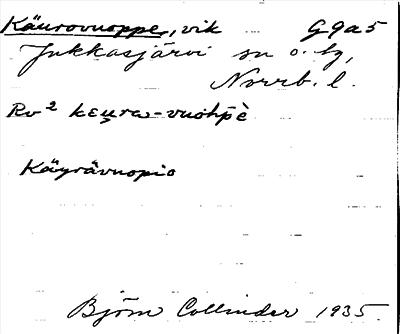 Käurovuoppe, vik G9a5
Jukkasjärvi sn o. tg,
Norrb. l.
Rv² keu̯ra-vuohpè
Käyrävuopio
Björn Collinder 1935